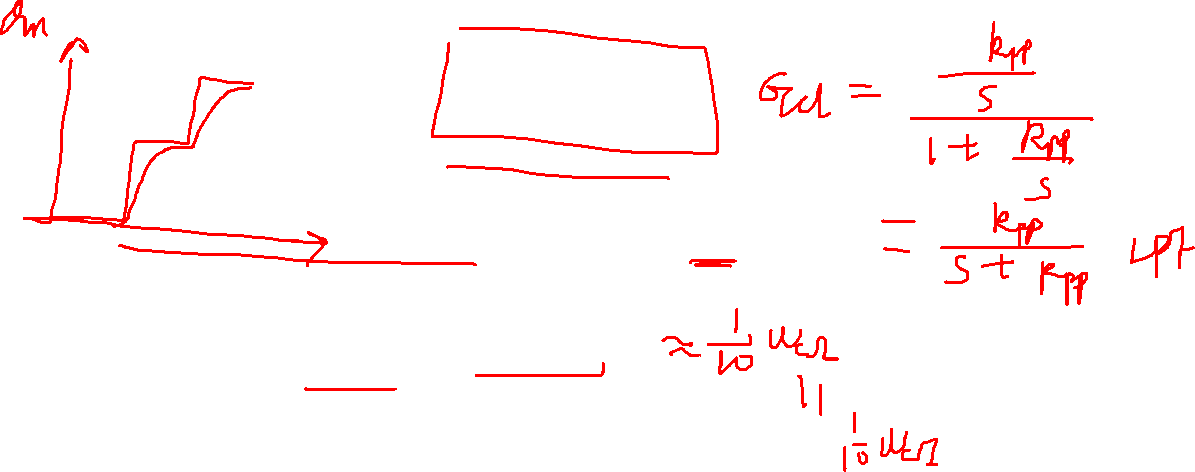 θm
Gcl = (kpp / s) / (1 + kpp / s)
= kpp / (s + kpp) LPF
≈ 1/10 ωcΩ
1/10 ωcΩ